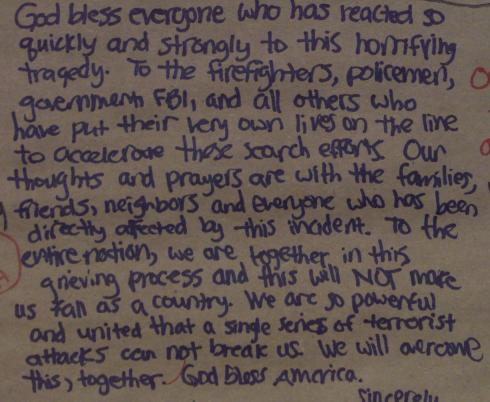 God bless everyone who has reacted so
quickly and strongly to this horrifying
tragedy. To the firefighters, policemen,
government FBI, and all others who
have put their very own lives on the line
to accelerate these search efforts. Our
thoughts and prayers are with the families,
friends, neighbors and everyone who has been
directly affected by this incident. To the
entire nation, we are together in this
grieving process and this will NOT make
us fall as a country. We are so powerful
and united that a single series of terrorist
attacks can not break us. We will overcome
this, together. God bless America.
Sincerely